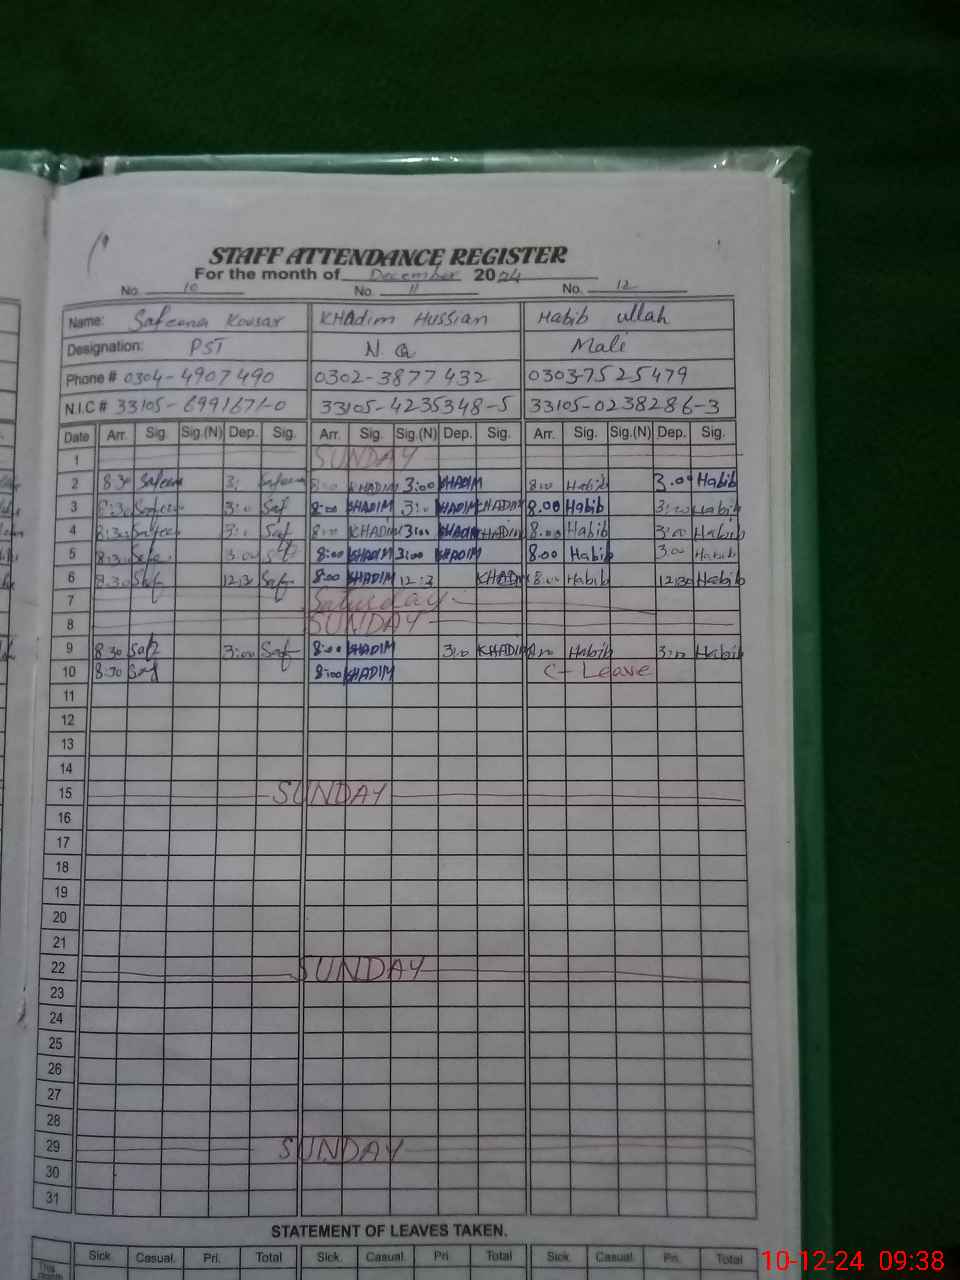 STAFF ATTENDANCE REGISTER
For the month of December 2024
No. 10 No. 11 No. 12
Name: Safeena Kousar KHadim Hussian Habib ullah
Designation: PST N.Q Mali
Phone # 0304-4907490 0302-3877432 0303-7525479
N.I.C # 33105-6991671-0 33105-4235348-5 33105-0238286-3
Date Arr. Sig. Sig.(N) Dep. Sig. Arr. Sig. Sig.(N) Dep. Sig. Arr. Sig. Sig.(N) Dep. Sig.
1 SUNDAY
2 8:30 Safeena 3: Safeena 8:00 KHADIM 3:00 KHADIM 8:00 Habib 3.00 Habib
3 8:30 Safeena 3:00 Saf 8:00 KHADIM 3:00 KHADIM KHADIM 8.00 Habib 3:00 Habib
4 8:30 Safeena 3:00 Saf 8:00 KHADIM 3:00 KHADIM KHADIM 8.00 Habib 3:00 Habib
5 8:30 Safe 3:00 Saf 8:00 KHADIM 3:00 KHADIM 8.00 Habib 3:00 Habib
6 8:30 Saf 12:30 Saf 8:00 KHADIM 12:3 KHADIM 8:00 Habib 12:30 Habib
7 Saturday
8 SUNDAY
9 8:30 Saf 3:00 Saf 8:00 KHADIM 3:00 KHADIM 8:00 Habib 3:00 Habib
10 8:30 Saf 8:00 KHADIM C-Leave
11
12
13
14
15 SUNDAY
16
17
18
19
20
21
22 SUNDAY
23
24
25
26
27
28
29 SUNDAY
30
31
STATEMENT OF LEAVES TAKEN.
Sick. Casual. Pri. Total Sick. Casual. Pri. Total Sick. Casual. Pri. Total
This month
10-12-24 09:38